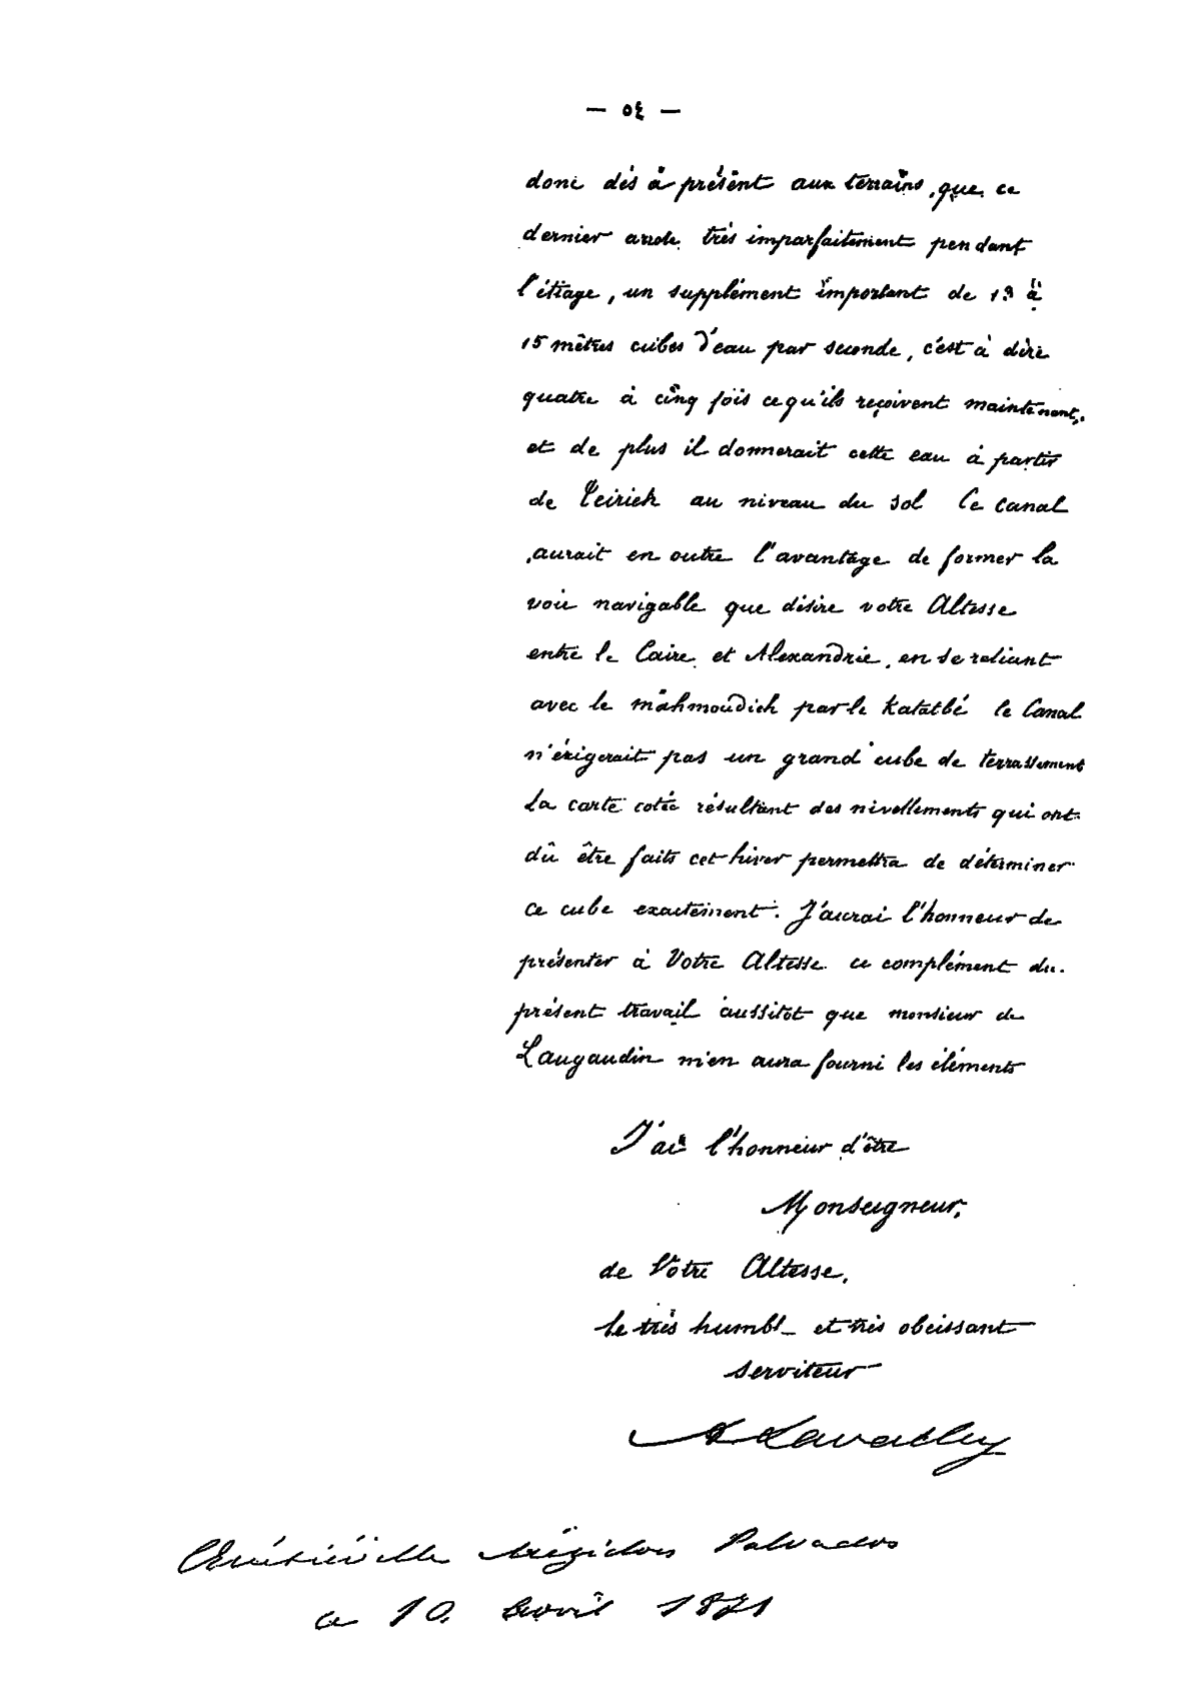 — ٥٤ —
donc dès à présent aux terrains, que ce
dernier arrose très imparfaitement pendant
l'étiage, un supplément important de 13 à
15 mètres cubes d'eau par seconde, c'est à dire
quatre à cinq fois ce qu'ils reçoivent maintenant,
et de plus il donnerait cette eau à partir
de Teirieh au niveau du sol Ce canal
aurait en outre l'avantage de former la
voie navigable que désire votre Altesse
entre le Caire et Alexandrie, en se reliant
avec le mahmoudieh par le Katatbé le Canal
n'éxigerait pas un grand cube de terrassement
La carte cotée résultant des nivellements qui ont
dû être faits cet hiver permettra de déterminer
ce cube exactement. J'aurai l'honneur de
présenter à Votre Altesse ce complément du
présent travail aussitôt que monsieur de
Laugaudin m'en aura fourni les éléments
J'ai l'honneur d'être
Monseigneur,
de Votre Altesse,
le très humbl_ et très obéissant
serviteur
A Lavalley
a 10 avril 1871